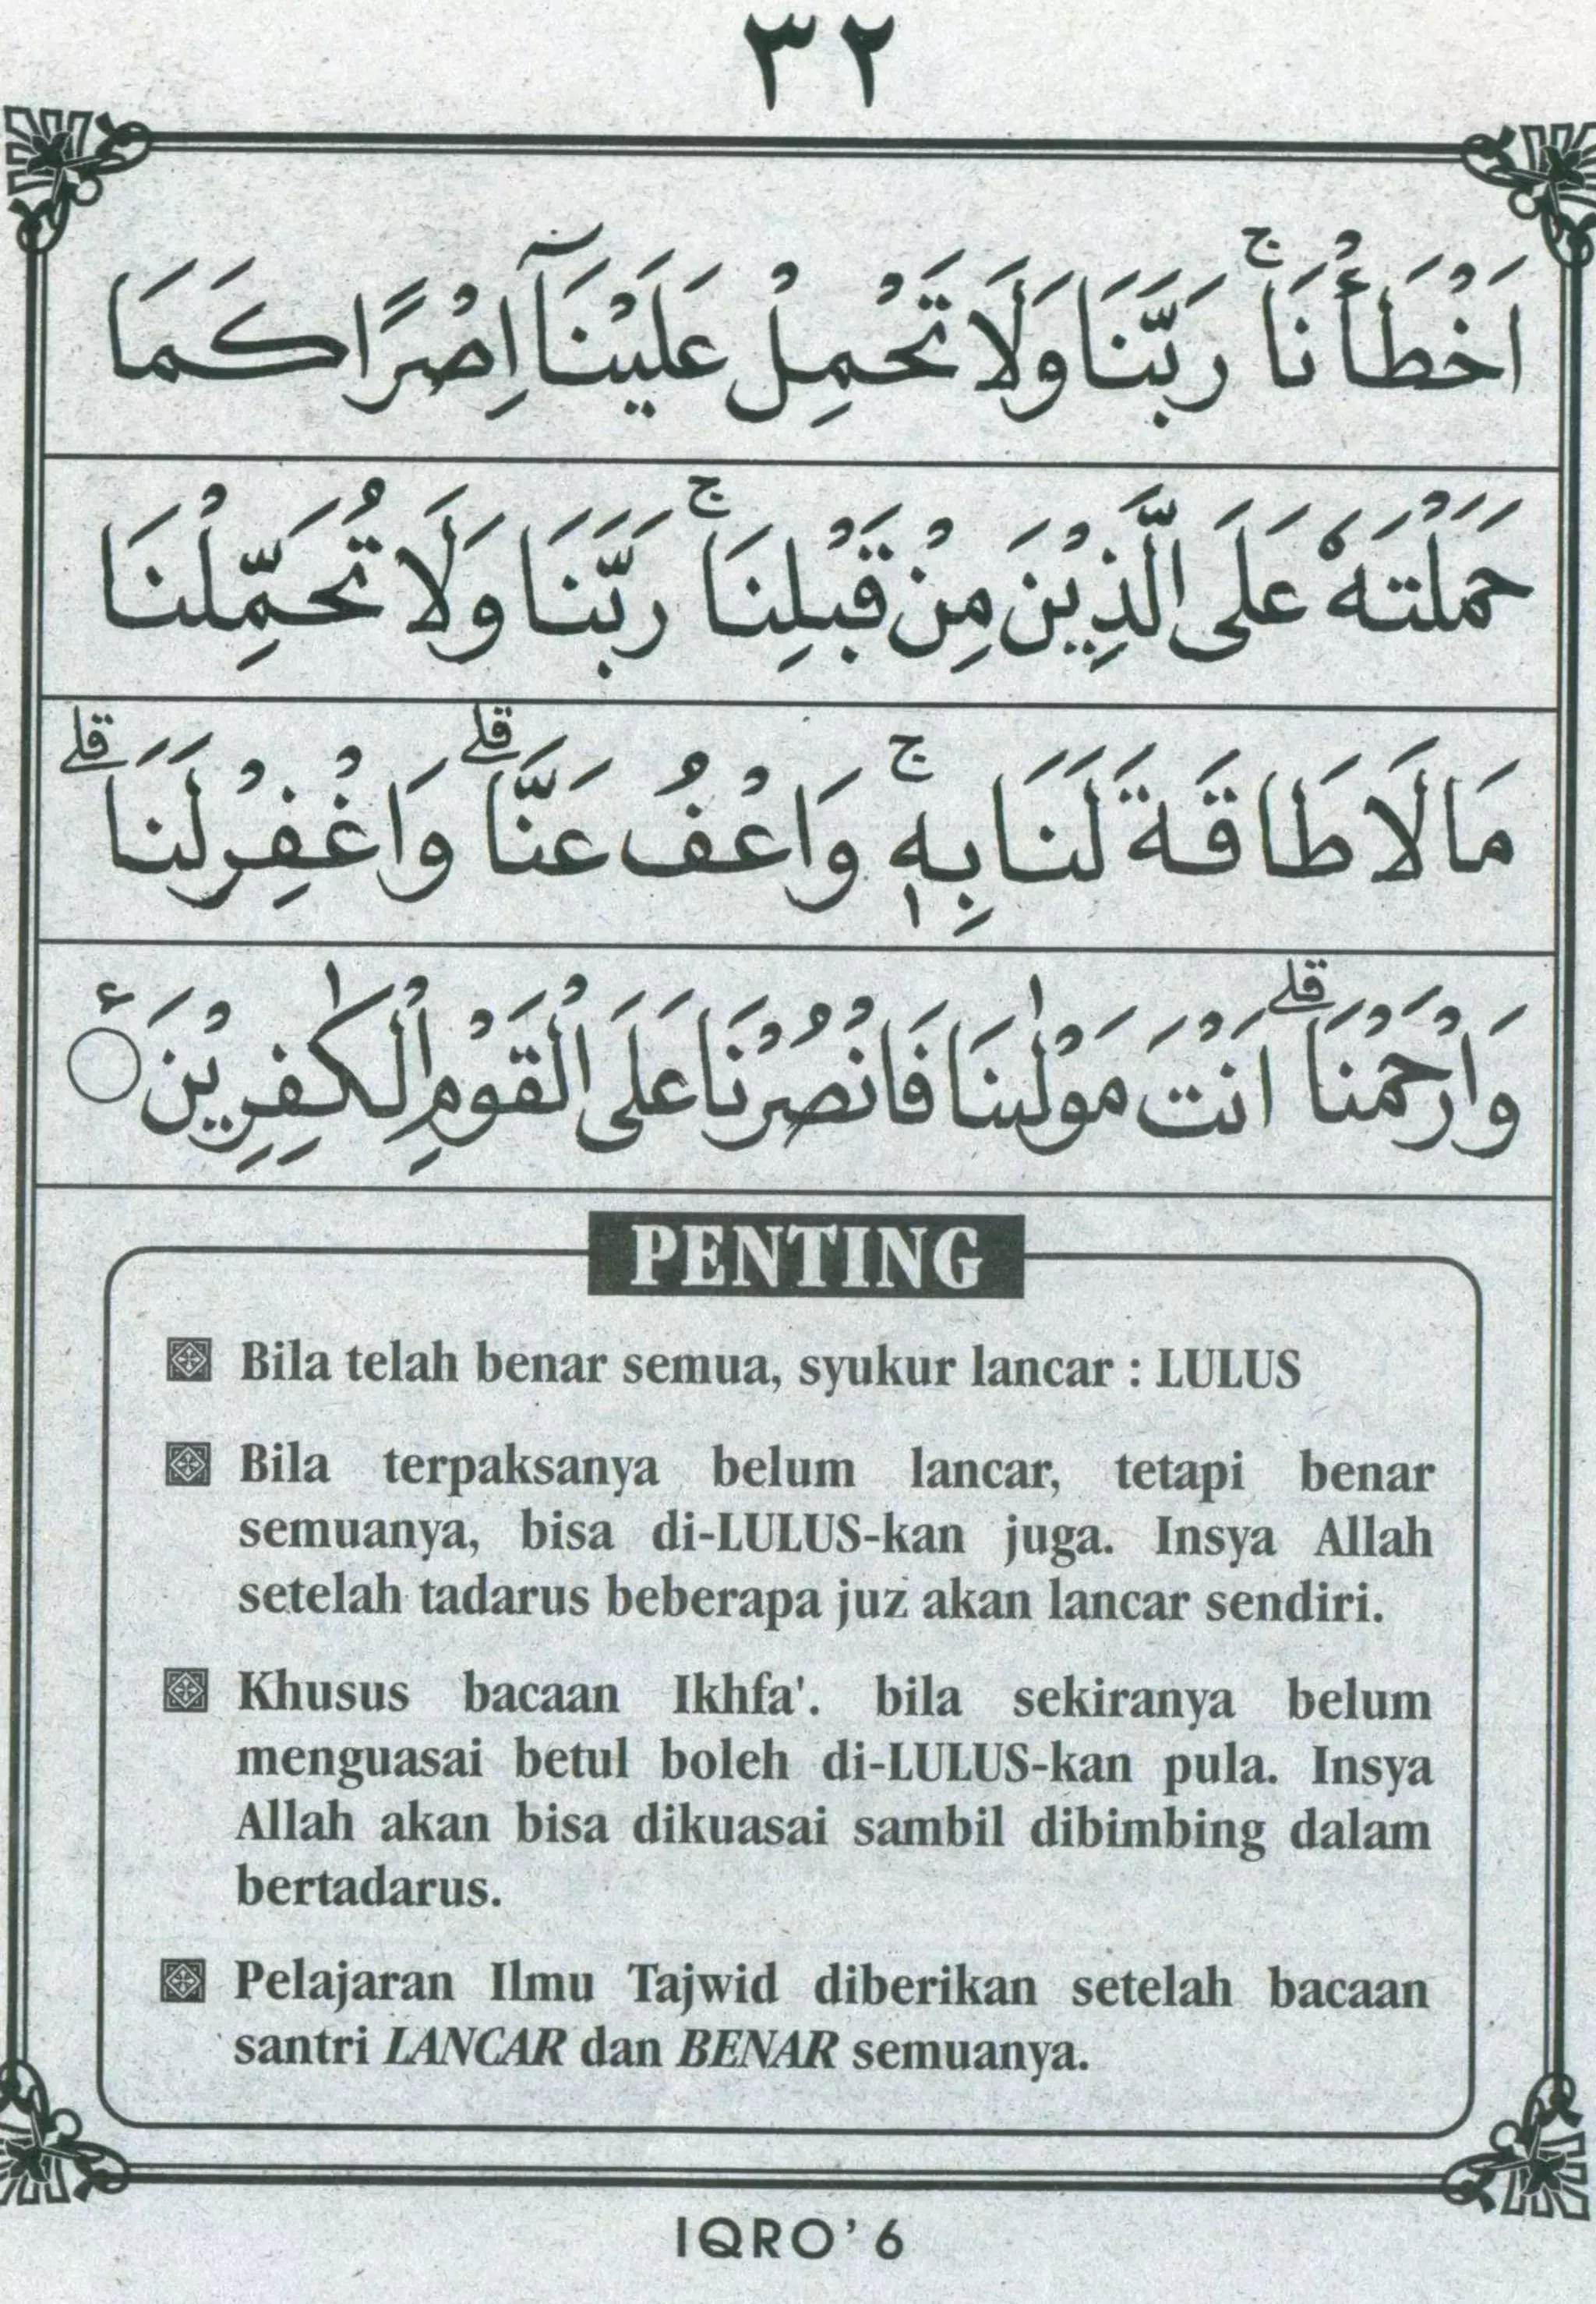 ٣٢
اَخْطَأْنَاۚ رَبَّنَا وَلَا تَحْمِلْ عَلَيْنَآ اِصْرًا كَمَا
حَمَلْتَهٗ عَلَى الَّذِيْنَ مِنْ قَبْلِنَاۚ رَبَّنَا وَلَا تُحَمِّلْنَا
مَا لَا طَاقَةَ لَنَا بِهٖۚ وَاعْفُ عَنَّاۗ وَاغْفِرْ لَنَاۗ
وَارْحَمْنَاۗ اَنْتَ مَوْلٰىنَا فَانْصُرْنَا عَلَى الْقَوْمِ الْكٰفِرِيْنَ ࣖ
PENTING
Bila telah benar semua, syukur lancar : LULUS
Bila terpaksanya belum lancar, tetapi benar
semuanya, bisa di-LULUS-kan juga. Insya Allah
setelah tadarus beberapa juz akan lancar sendiri.
Khusus bacaan Ikhfa'. bila sekiranya belum
menguasai betul boleh di-LULUS-kan pula. Insya
Allah akan bisa dikuasai sambil dibimbing dalam
bertadarus.
Pelajaran Ilmu Tajwid diberikan setelah bacaan
santri LANCAR dan BENAR semuanya.
IQRO’6